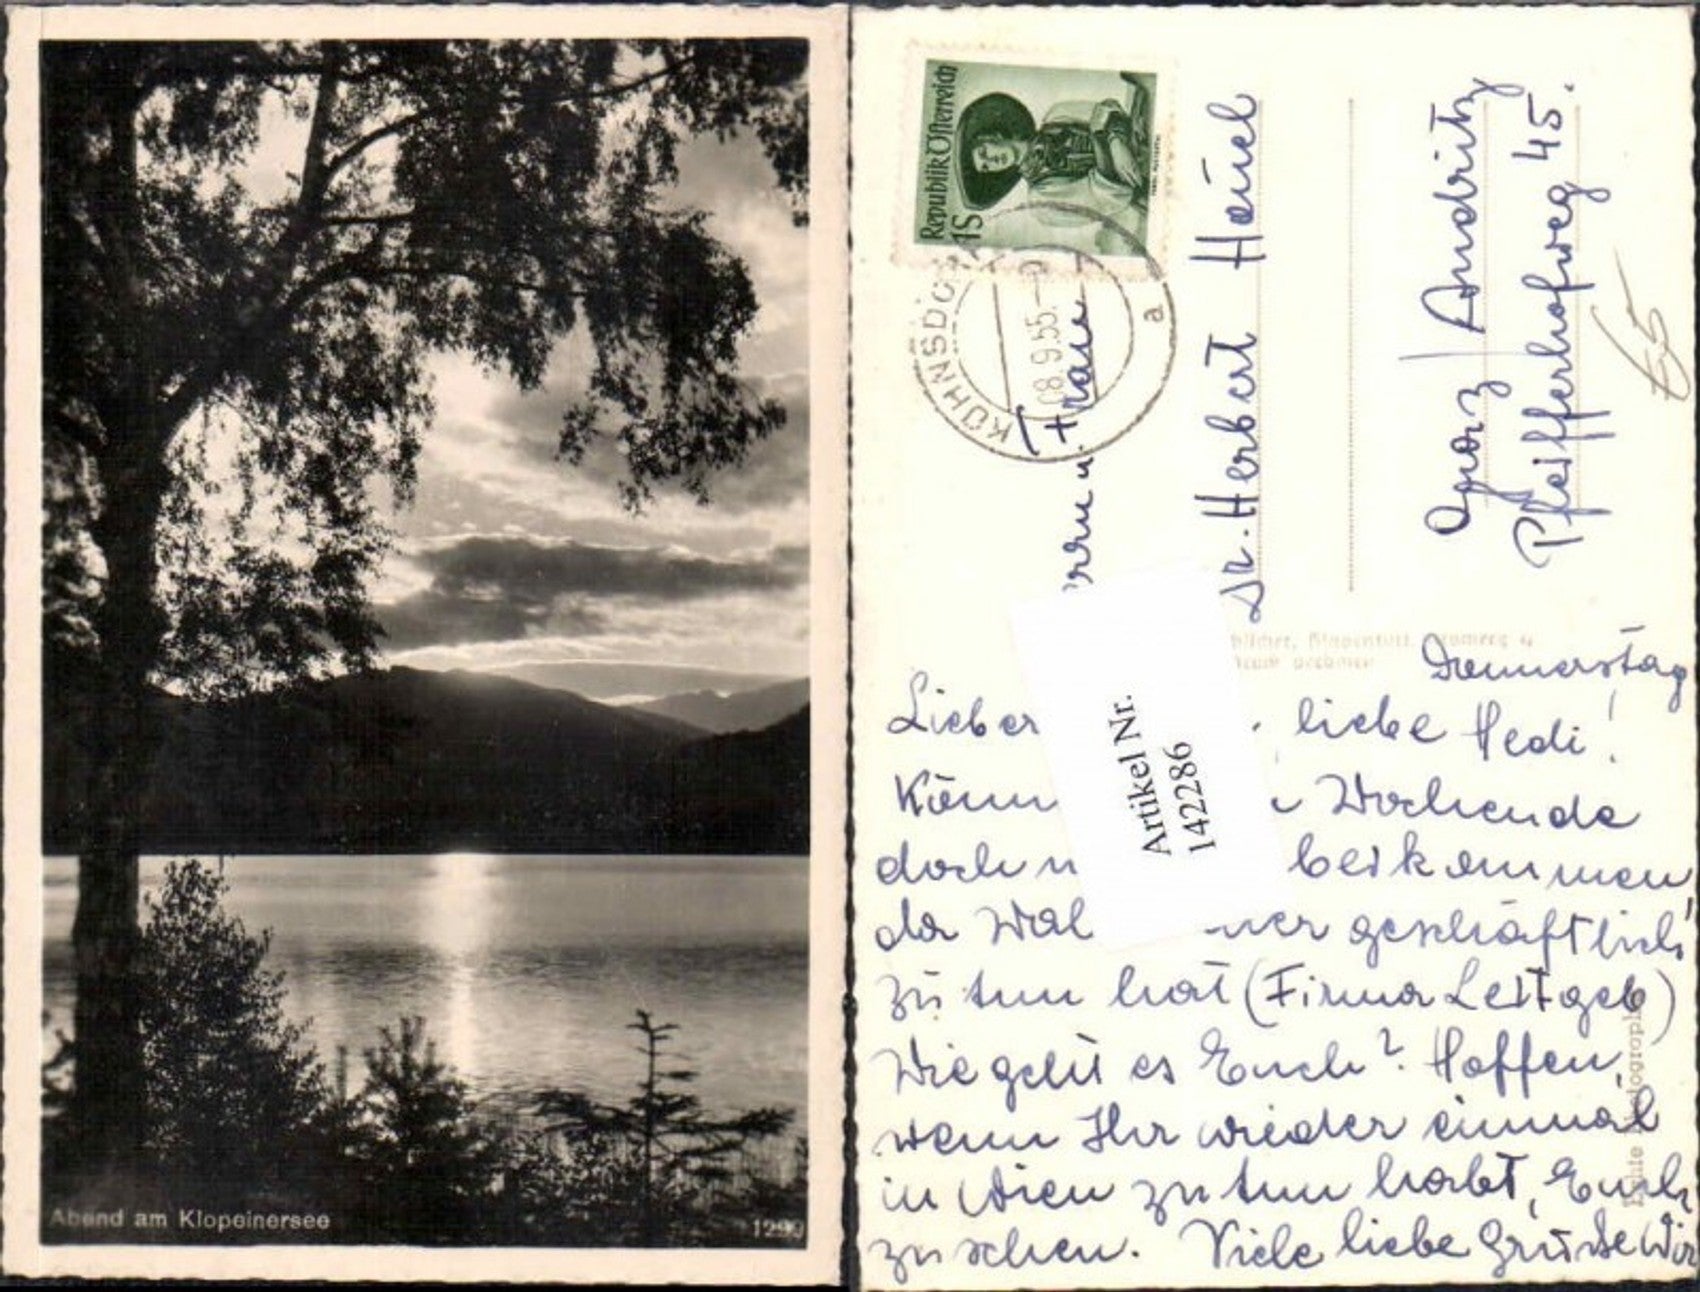 Abend am Klopeinersee
1299
Republik Österreich
1S
KÜHNSDO
8.9.55.
a
u. Frau
Dr. Herbert Hanel
Graz / Andritz
Pfeifferhofweg 45.
Artikel Nr.
142286
Donnerstag
Lieber liebe Hedi!
Könn Wochenende
doch beikommen,
da Wal hier geschäftlich
zu tun hat (Firma Leitgeb)
Wie geht es Euch? Hoffen,
wenn Ihr wieder einmal
in Wien zu tun habt, Euch
zu sehen. Viele liebe Grüße Wir
Echte Photographie